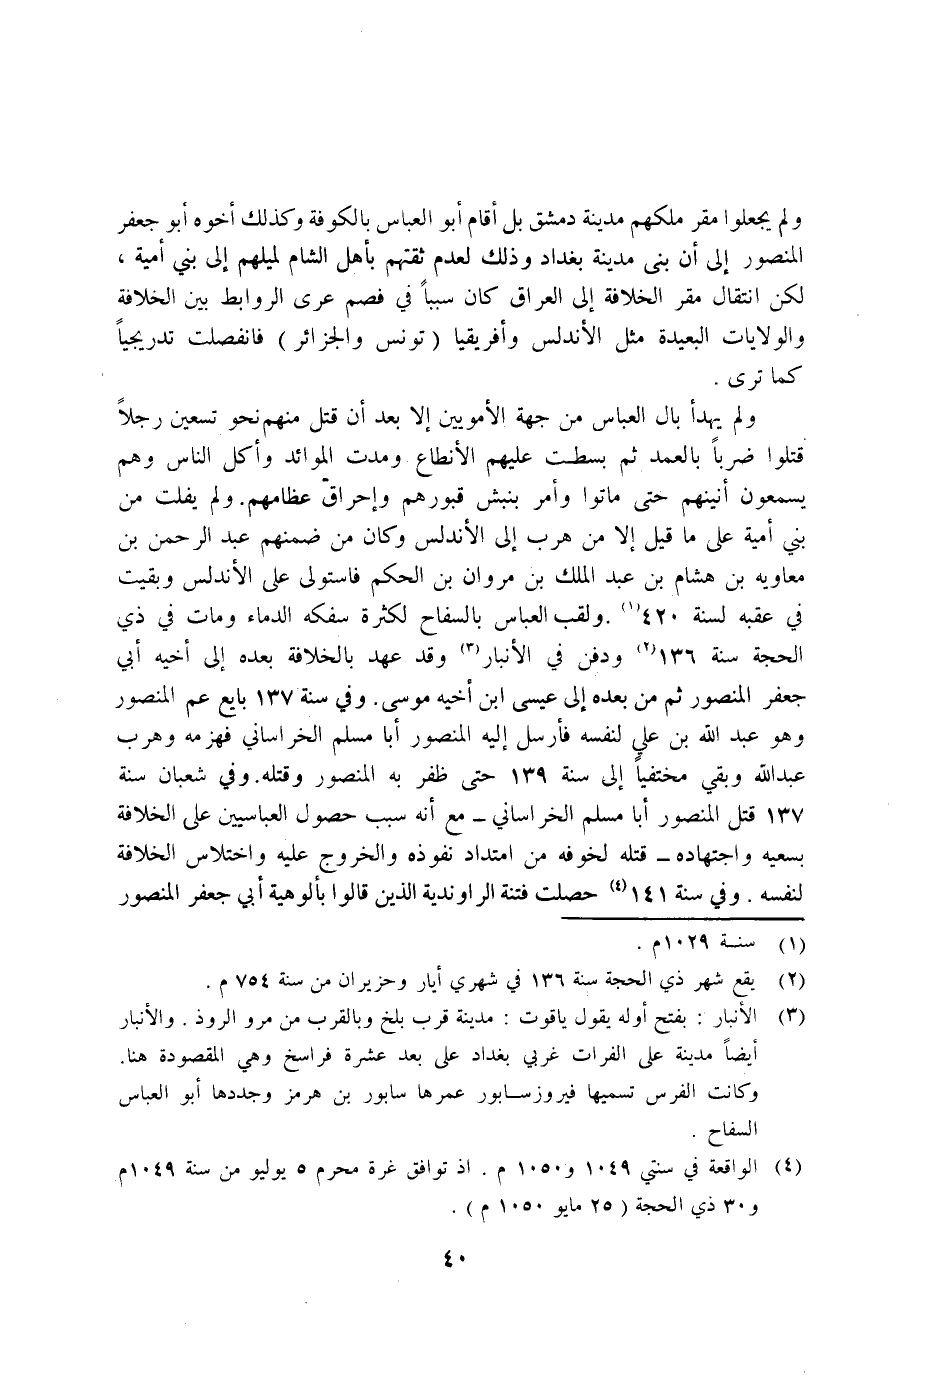 ولم يجعلوا مقر ملكهم مدينة دمشق بل أقام أبو العباس بالكوفة وكذلك أخوه أبو جعفر
المنصور إلى أن بنى مدينة بغداد وذلك لعدم ثقتهم بأهل الشام لميلهم إلى بني أمية ،
لكن انتقال مقر الخلافة إلى العراق كان سبباً في فصم عرى الروابط بين الخلافة
والولايات البعيدة مثل الأندلس وأفريقيا ( تونس والجزائر ) فانفصلت تدريجياً
كما ترى .
ولم يهدأ بال العباس من جهة الأمويين إلا بعد أن قتل منهم نحو تسعين رجلاً
قتلوا ضرباً بالعمد ثم بسطت عليهم الأنطاع ومدت الموائد وأكل الناس وهم
يسمعون أنينهم حتى ماتوا وأمر بنبش قبورهم وإحراق عظامهم. ولم يفلت من
بني أمية على ما قيل إلا من هرب إلى الأندلس وكان من ضمنهم عبد الرحمن بن
معاويه بن هشام بن عبد الملك بن مروان بن الحكم فاستولى على الأندلس وبقيت
في عقبه لسنة ٤٢٠(١) .ولقب العباس بالسفاح لكثرة سفكه الدماء ومات في ذي
الحجة سنة ١٣٦(٢) ودفن في الأنبار(٣) وقد عهد بالخلافة بعده إلى أخيه أبي
جعفر المنصور ثم من بعده إلى عيسى ابن أخيه موسى. وفي سنة ١٣٧ بايع عم المنصور
وهو عبد الله بن علي لنفسه فأرسل إليه المنصور أبا مسلم الخراساني فهزمه وهرب
عبدالله وبقي مختفياً إلى سنة ١٣٩ حتى ظفر به المنصور وقتله. وفي شعبان سنة
١٣٧ قتل المنصور أبا مسلم الخراساني ــ مع أنه سبب حصول العباسيين على الخلافة
بسعيه واجتهاده ــ قتله لخوفه من امتداد نفوذه والخروج عليه واختلاس الخلافة
لنفسه . وفي سنة ١٤١(٤) حصلت فتنة الراوندية الذين قالوا بألوهية أبي جعفر المنصور
(١) سنة ١٠٢٩م .
(٢) يقع شهر ذي الحجة سنة ١٣٦ في شهري أيار وحزيران من سنة ٧٥٤ م .
(٣) الأنبار : بفتح أوله يقول ياقوت : مدينة قرب بلخ وبالقرب من مرو الروذ . والأنبار
أيضاً مدينة على الفرات غربي بغداد على بعد عشرة فراسخ وهي المقصودة هنا.
وكانت الفرس تسميها فيروزسابور عمرها سابور بن هرمز وجددها أبو العباس
السفاح .
(٤) الواقعة في سنتي ١٠٤٩ و١٠٥٠ م . اذ توافق غرة محرم ٥ يوليو من سنة ١٠٤٩م
و٣٠ ذي الحجة ( ٢٥ مايو ١٠٥٠ م ) .
٤٠